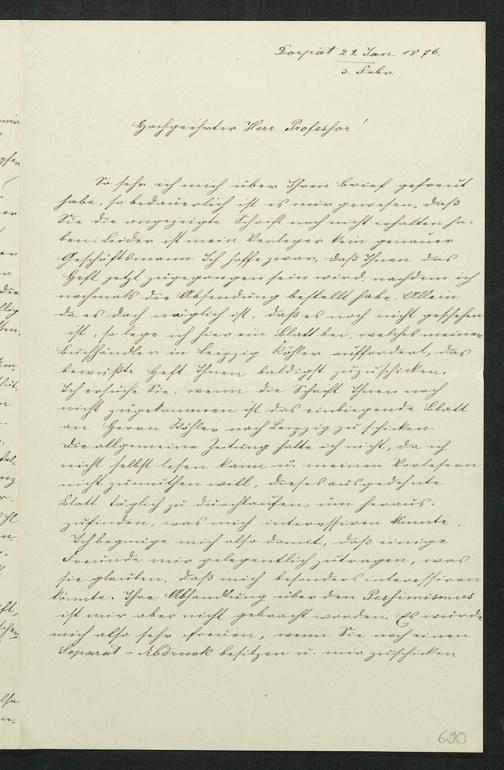 Dorpat 22 Jan. 1876.
3. Febr.
Hochgeehrter Herr Professor!
So sehr ich mich über Ihren Brief gefreut
habe, so bedauerlich ist es mir gewesen, daß
Sie die angezeigte Schrift noch nicht erhalten ha-
ben. Leider ist mein Verleger kein genauer
Geschäftsmann. Ich hoffe zwar, daß Ihnen das
Heft jetzt zugegangen sein wird, nachdem ich
nochmals die Absendung bestellt habe. Allein
da es doch möglich ist, daß es noch nicht geschehen
ist, so lege ich hier ein Blatt bei, welches meinen
Buchhändler in Leipzig Köhler auffordert, das
bewußte Heft Ihnen baldigst zuzuschicken.
Ich ersuche Sie, wenn die Schrift Ihnen noch
nicht zugekommen ist das einliegende Blatt
an Herrn Köhler nach Leipzig zu schicken.
Die allgemeine Zeitung halte ich nicht, da ich
nicht selbst lesen kann u. meinen Vorlesern
nicht zumuthen will, dieses ausgedehnte
Blatt täglich zu durchlaufen, um heraus-
zufinden, was mich interessiren könnte.
Ich begnüge mich also damit, daß einige
Freunde mir gelegentlich zutragen, was
sie glauben, daß mich besonders interessiren
könnte. Ihre Abhandlung über den Pessimismus
ist mir aber nicht gebracht worden. Es würde
mich also sehr freuen, wenn Sie noch einen
Separat-Abdruck besitzen u. mir zuschicken
690